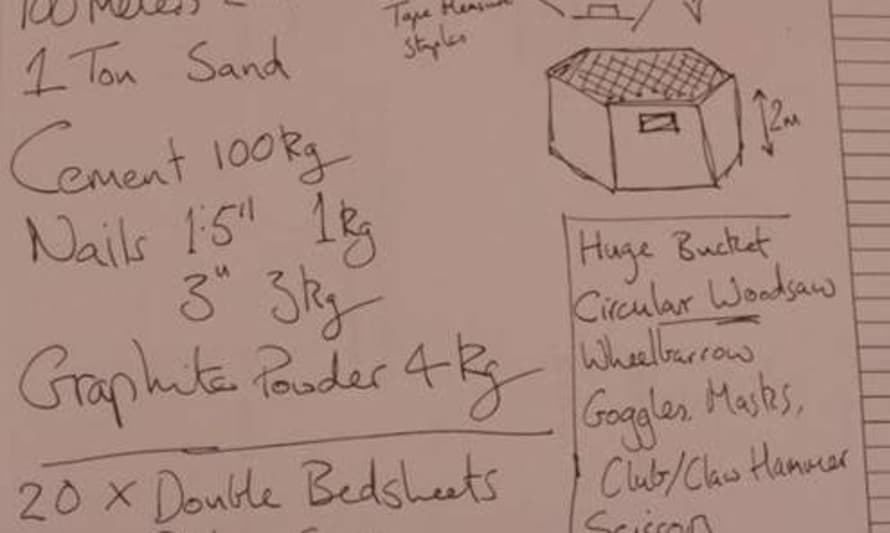 100 Meters -
Tape Measure
Staples
1 Ton Sand
Cement 100kg
Nails 1.5" 1kg
3" 3kg
Graphite Powder 4kg
20 x Double Bedsheets
2m
Huge Bucket
Circular Woodsaw
Wheelbarrow
Goggles, Masks,
Club/Claw Hammer
Scissors